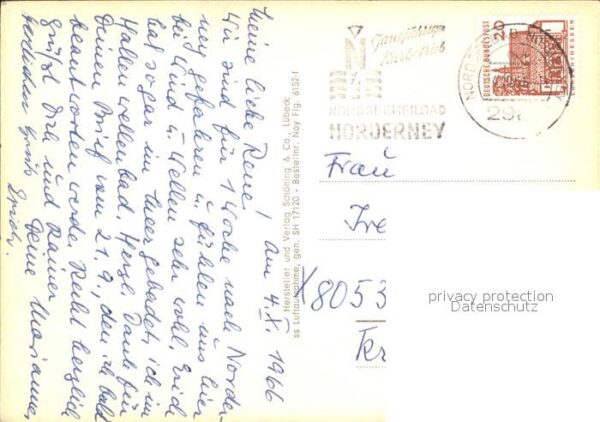 am 4. X. 1966
Meine liebe Rene!
Wir sind für 1 Woche nach Norder-
ney gefahren u. fühlen uns hier
bei Wind u. Wellen sehr wohl. Erich
hat sogar im Meer gebadet, ich im
Hallenwellenbad. Herzl. Dank für
Deinen Brief vom 21.9., den ich bald
beantworten werde. Recht herzlich
grüßt Dich und Rainer
Deine Marianne,
herzlichen Gruß
Erich.
Hersteller und Verlag Schöning & Co., Lübeck
ss Luftaufnahme, gen. SH 17120 - Bestellnr. Noy Flg. 61521
Ganzjähriger
Kurbetrieb
NORDSEEHEILBAD
NORDERNEY
DEUTSCHE BUNDESPOST
20
Frau
Ire
8053
Kr
privacy protection
Datenschutz